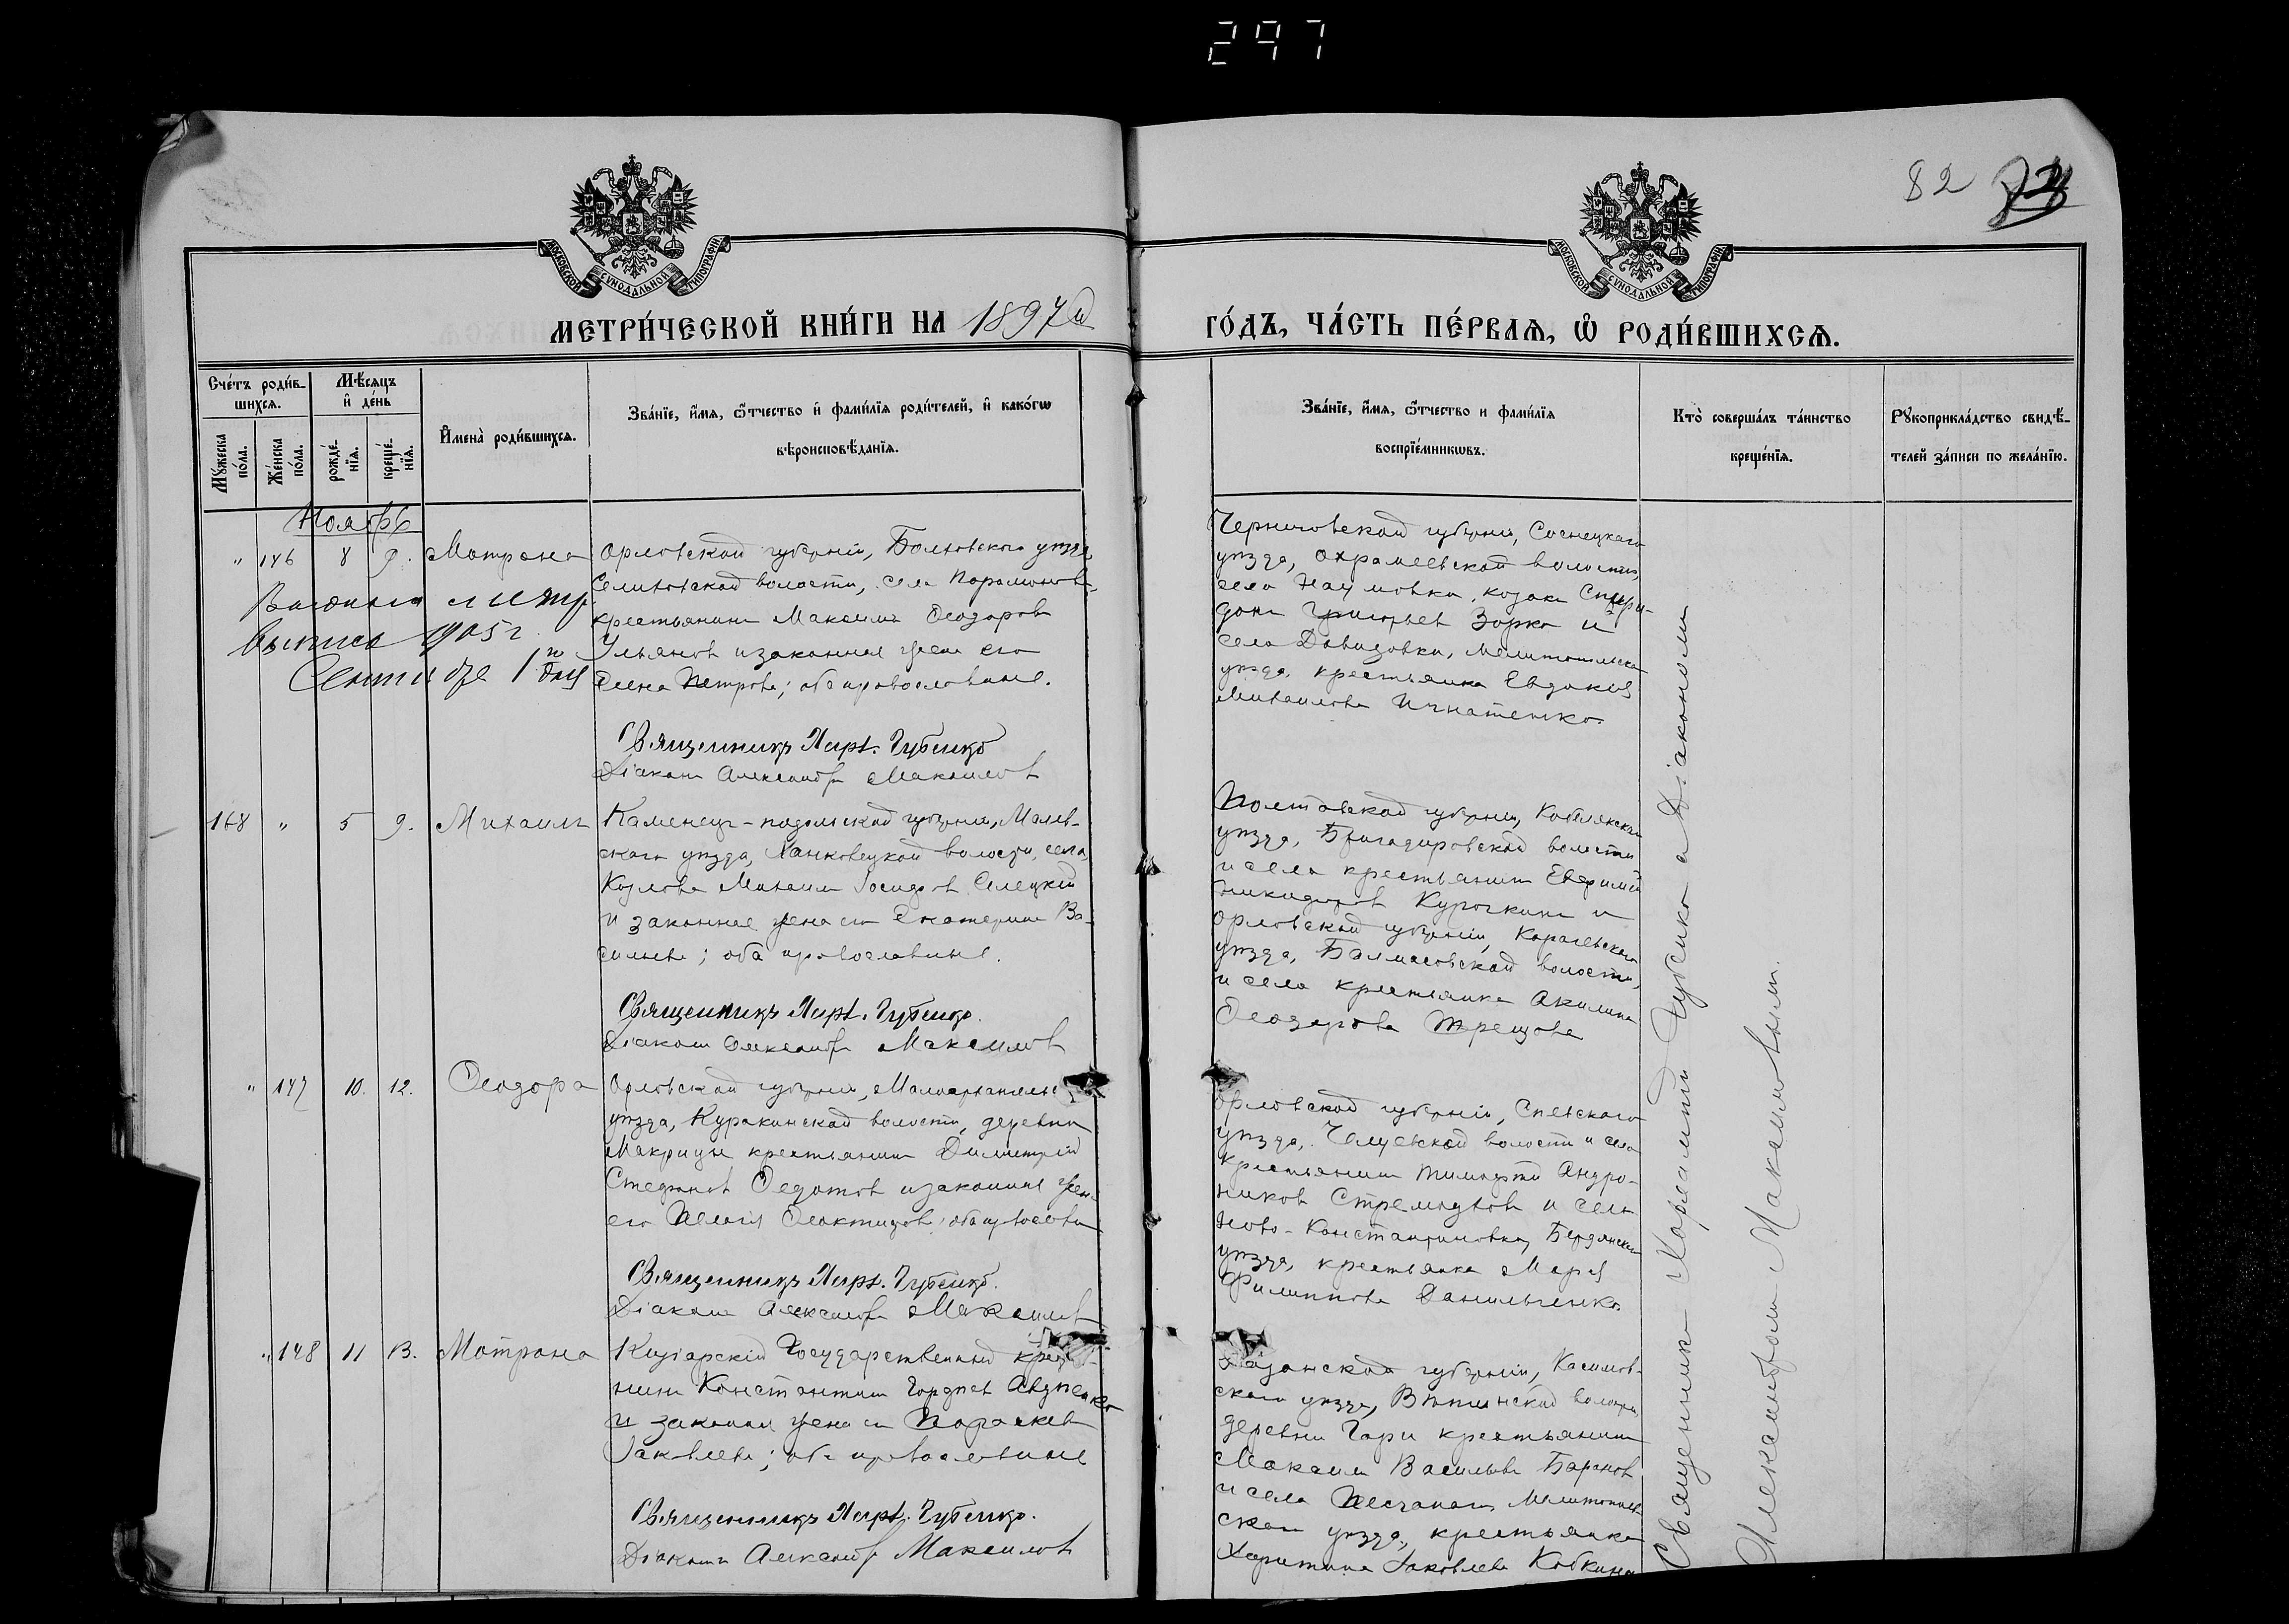 297
82
МОСКОВСКОЙ СѴНОДАЛЬНОЙ ТИПОГРАФІИ
МОСКОВСКОЙ СѴНОДАЛЬНОЙ ТИПОГРАФІИ
МЕТРИ́ЧЕСКОЙ КНИ́ГИ НА 1897й ГО́ДЪ, ЧА́СТЬ ПЕ́РВАѦ, Ѡ҆ РОДИ́ВШИХСѦ.
Сче́тъ роди́в-
шихсѧ.
Мꙋ́жеска
по́ла.
Же́нска
по́ла.
Мѣ́сѧцъ
и҆ де́нь
рожде́-
нїѧ.
креще́-
нїѧ.
И҆мена̀ роди́вшихсѧ.
Зва́нїе, и҆́мѧ, ѻ҆́тчество и҆ фами́лїѧ роди́телей, и҆ како́гѡ
вѣроисповѣ́данїѧ.
Зва́нїе, и҆́мѧ, ѻ҆́тчество и фами́лїѧ
воспрїе́мникѡвъ.
Кто̀ соверша́лъ та́инство
креще́нїѧ.
Рꙋкоприкла́дство свидѣ́-
телей за́писи по жела́нїю.
Ноябрь
" 146 8 9. Матрона
Орловской губерніи, Болховского уѣзда
волости, села
крестьянинъ Максимъ Ѳеодоровъ
Ульяновъ и законная жена его
Елена Петрова; оба православные.
выписъ 1905 г.
1го дня
Священникъ Харл. Губенко
Діаконъ Александръ Максимовъ
Черниговской губерніи, Сосницкаго
уѣзда, Охрамеевской волости,
села Наумовки, козакъ Спири-
донъ Григорьевъ Зорка и
села Давидовки, Мелитопольскаго
уѣзда, крестьянка Евдокія
Михаилова Игнатенко.
168 " 5 9. Михаилъ
Каменецъ-подольской губерніи,
скаго уѣзда, Ханковецкой волости, села
Козлова Михаилъ Іосифовъ Селецкій
и законная жена его Екатерина Ва-
сильева; оба православные.
Священникъ Харл. Губенко.
Діаконъ Александръ Максимовъ
Полтавской губерніи, Кобелякскаго
уѣзда, Бригадировской волости
и села крестьянинъ Евфимій
Никифоровъ Курочкинъ и
Орловской губерніи, Карачевскаго
уѣзда, волости,
и села крестьянка Акилина
Ѳеодорова
" 147 10. 12. Ѳеодора
Орловской губерніи, Малоархангельс
уѣзда, Куракинской волости, деревни
Макрицы крестьянинъ Димитрій
Стефановъ Ѳедотовъ и законная жена
его Пелагія оба православн
Священникъ Харл. Губенко.
Діаконъ Александръ Максимовъ
Орловской губерніи, Сѣвскаго
уѣзда, волости и села
крестьянинъ Тимофей Андро-
никовъ Стремоуховъ и села
Ново-Константиновки, Бердянскаго
уѣзда, крестьянка Марія
Филиппова Данильченко.
" 148 11 13. Матрона
Кизіарскій Государственный крестья
нинъ Константинъ Гордѣевъ Авдѣенко
и законная жена его Параскева
Іаковлева; оба православные
Священникъ Харл. Губенко.
Діаконъ Александръ Максимовъ
Рязанской губерніи, Касимов-
скаго уѣзда, волости,
деревни Гари крестьянинъ
Максимъ Васильевъ Барановъ
и села Песчанаго, Мелитополь-
скаго уѣзда, крестьянка
Харитина Іаковлева Кобкина
Священникъ Харлампій Губенко съ Діакономъ
Александромъ Максимовымъ.